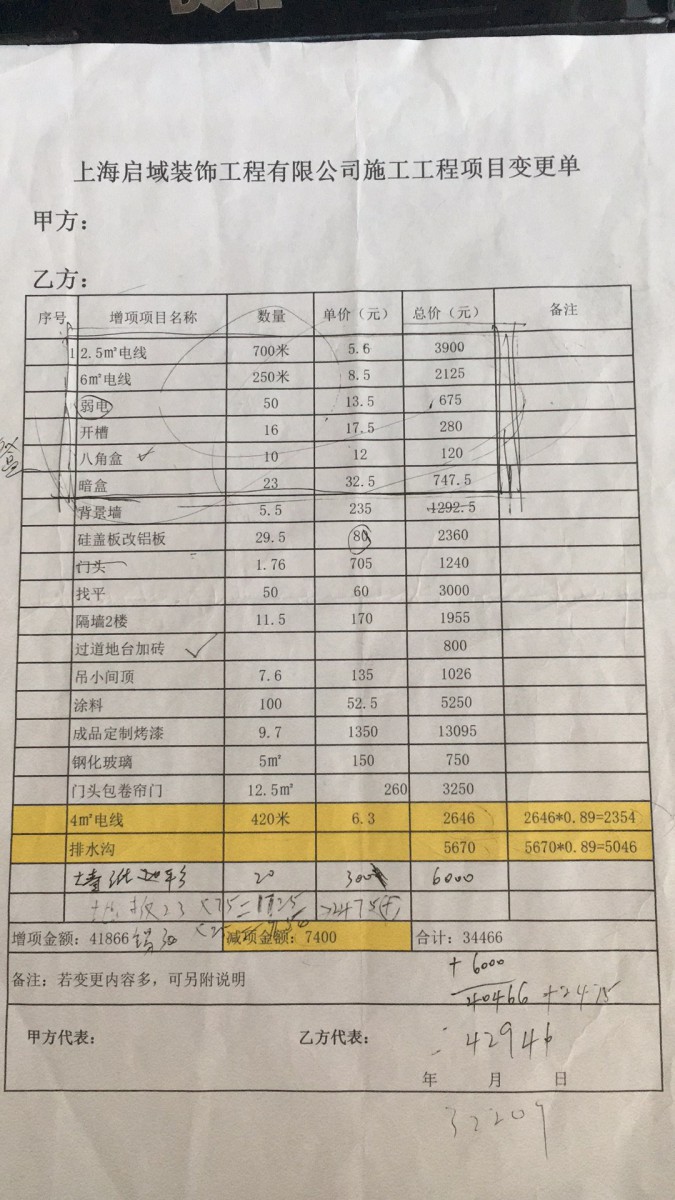 上海启域装饰工程有限公司施工工程项目变更单
甲方：
乙方：
序号 增项项目名称 数量 单价（元） 总价（元） 备注
1 2.5㎡电线 700米 5.6 3900
6㎡电线 250米 8.5 2125
弱电 50 13.5 675
开槽 16 17.5 280
八角盒 10 12 120
暗盒 23 32.5 747.5
背景墙 5.5 235 1292.5
硅盖板改铝板 29.5 80 2360
门头 1.76 705 1240
找平 50 60 3000
隔墙2楼 11.5 170 1955
过道地台加砖 800
吊小间顶 7.6 135 1026
涂料 100 52.5 5250
成品定制烤漆 9.7 1350 13095
钢化玻璃 5㎡ 150 750
门头包卷帘门 12.5㎡ 260 3250
4㎡电线 420米 6.3 2646 2646*0.89=2354
排水沟 5670 5670*0.89=5046
20 300 6000
地板23×75=1725
增项金额：41866 减项金额：7400 合计：34466
+6000
备注：若变更内容多，可另附说明
40466+2475
甲方代表： 乙方代表： 42946
年 月 日
32209